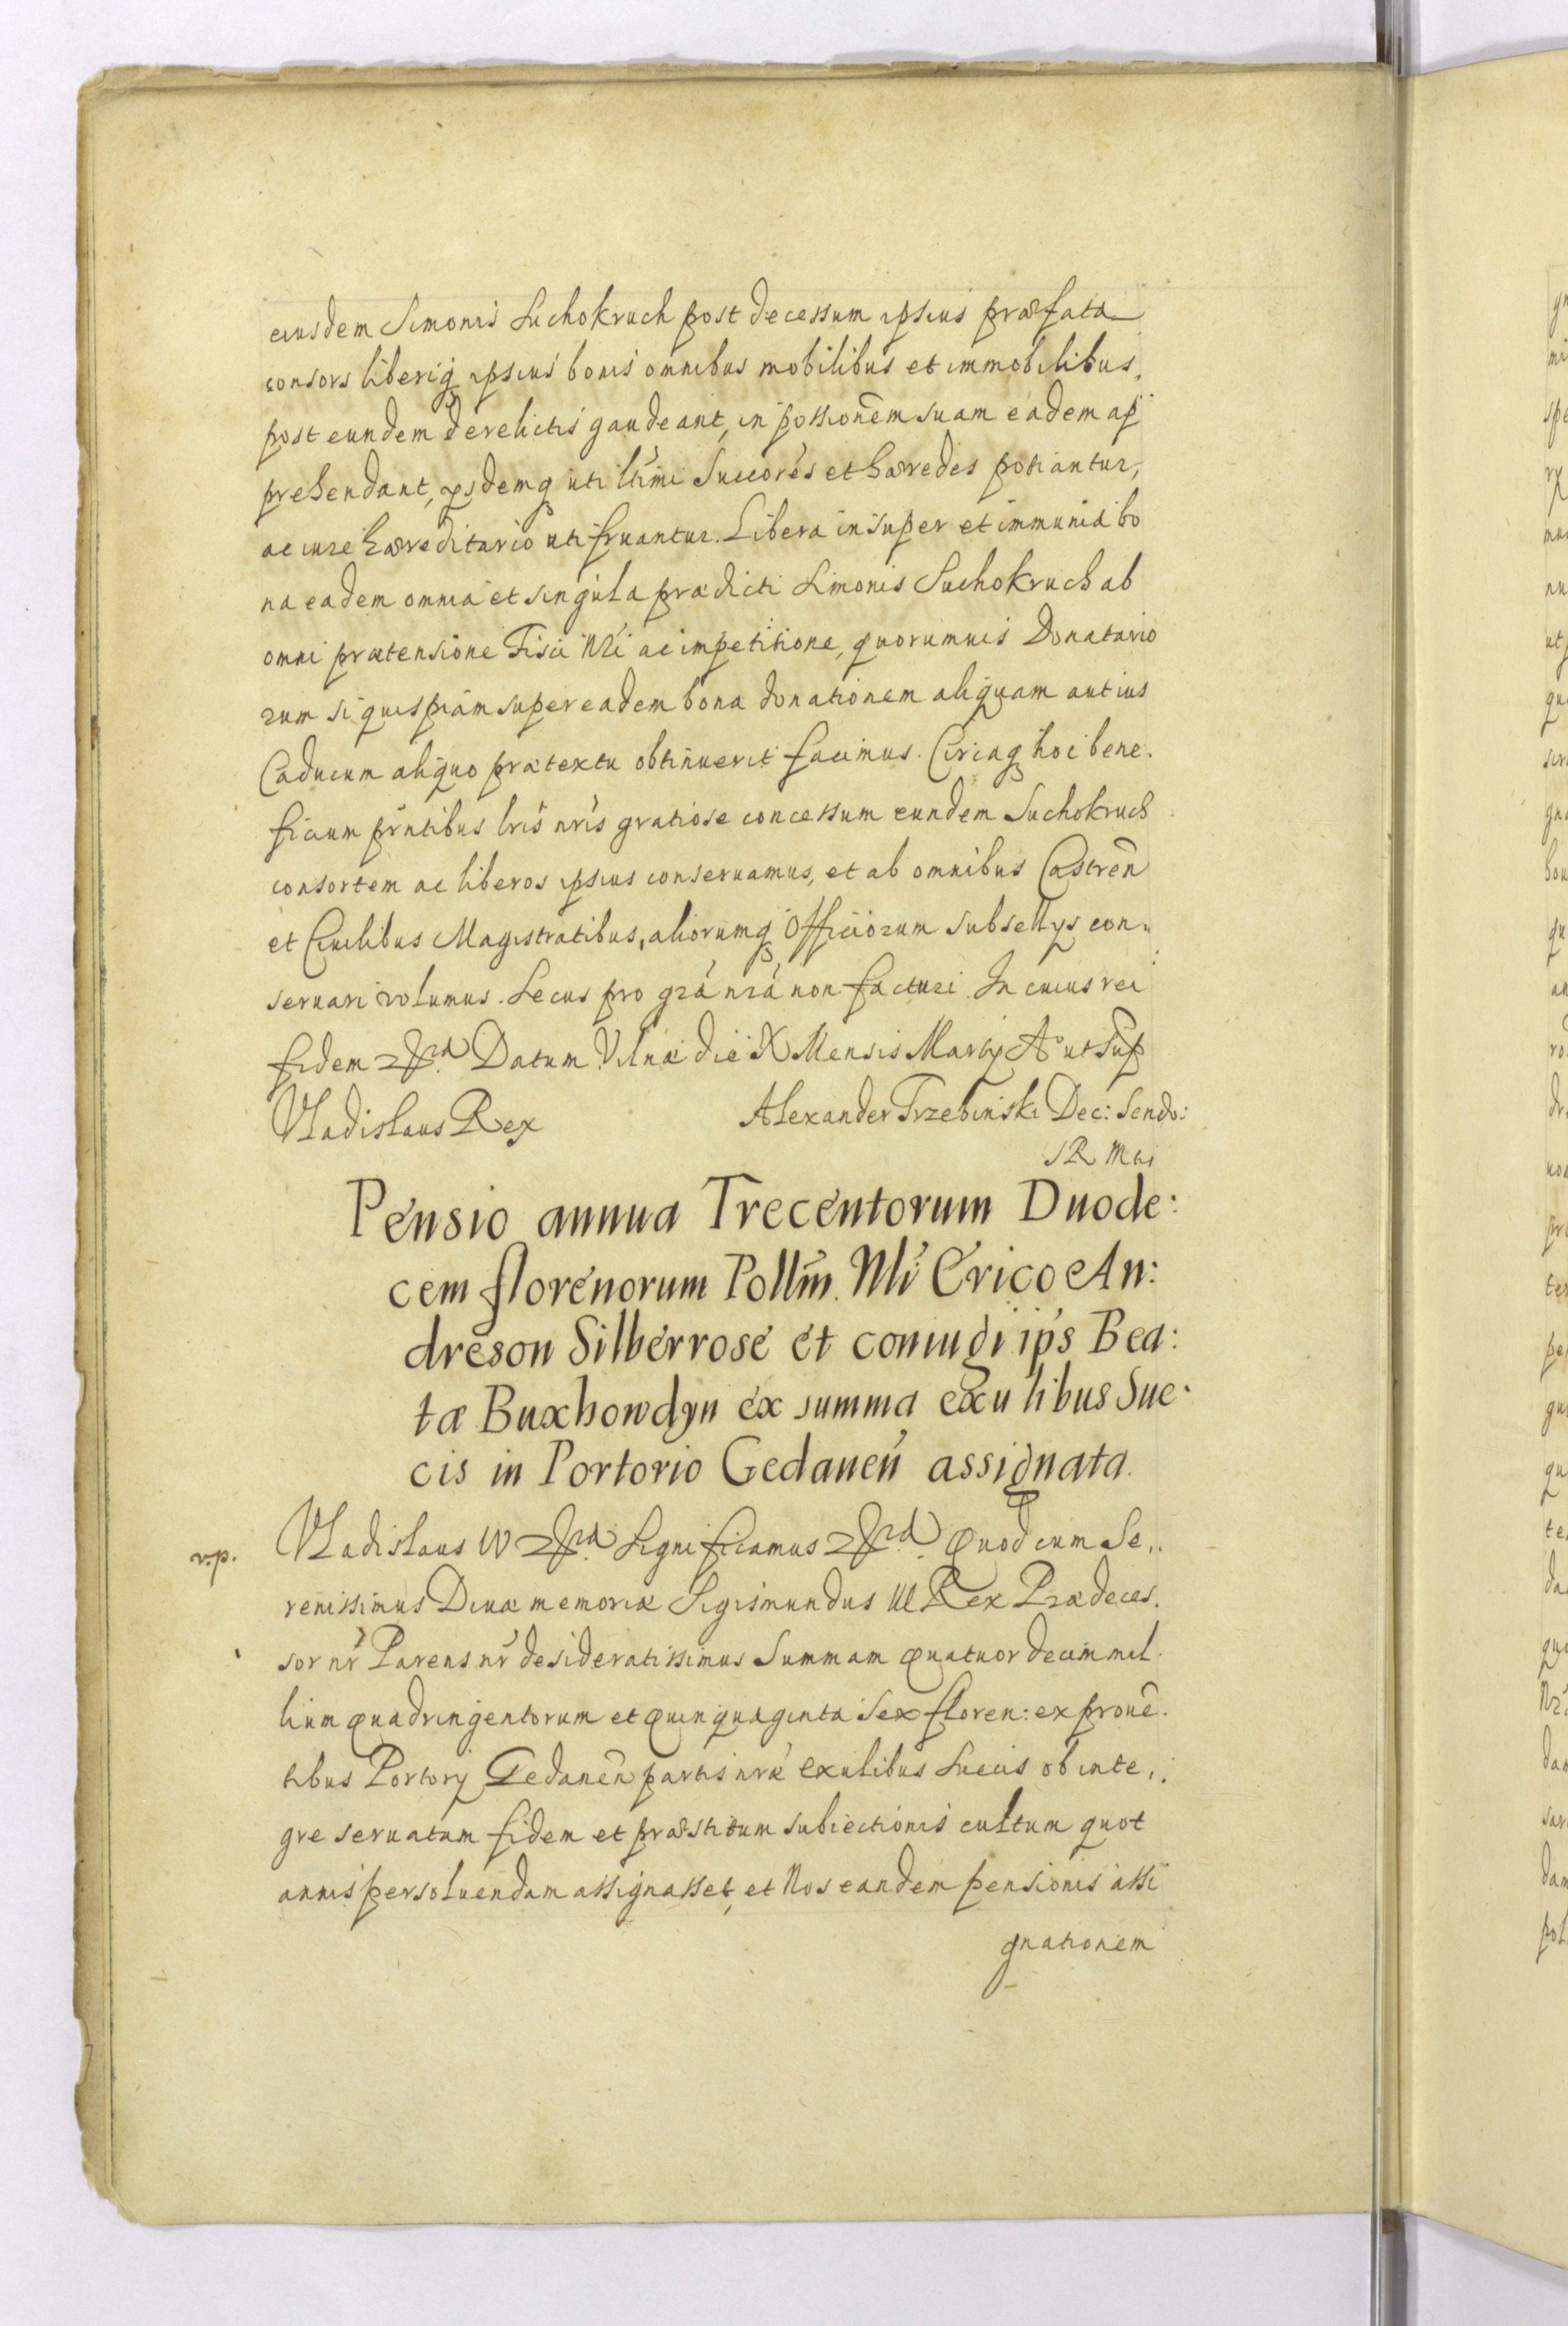 eiusdem Simonis Suchokruch post decessum ipsius præfata
consors liberiq ipsius bonis omnibus mobilibus et immobilibus,
post eundem derelictis gaudeant, in possionem suam eadem ap
prehendant, ysdemq uti ltimi Succores et hæredes potiantur,
ac iure hæreditario uti fruantur. Libera insuper et immunia bo
na eadem omnia et singula prædicti Simonis Suchokruch ab
omni prætensione Fisci Nri ac impetitione, quorumuis Donatario
rum si quispiam super eadem bona donationem aliquam aut ius
Caducum aliquo prætextu obtinuerit facimus. Circaq hoc bene.
ficium pntibus lris nris gratiose concessum eundem Suchokruch
consortem ac liberos ipsius conseruamus, et ab omnibus Castren
et Ciuilibus Magistratibus, aliorumq Officiorum subsellys con„
seruari volumus. Secus pro gra nra non facturi. In cuius rei
fidem Datum Vilnæ die X Mensis Marty Aº ut Sup
Vladislaus Rex Alexander Trzebinski Dec: Sendo:
S R Mtis
Pensio annua Trecentorum Duode:
cem florenorum Pollm. Nli Erico An:
dreson Silberrose et coniugi ips Bea:
tæ Buxhowdyn ex summa exulibus Sue:
cis in Portorio Gedanen assignata.
v.p.
Vladislaus IV Significamus Quod cum Se„
renissimus Diuæ memoriæ Sigismundus III Rex Prædeces.
sor nr Parens nr desideratissimus Summam Quatuor decim mil.
lium Quadringentorum et Quinquaginta Sex floren: ex prouē.
tibus Portory Gedanen partis nræ exulibus Suecis ob inte„
gre seruatam fidem et præstitum subiectionis cultum quot
annis persoluendam assignasset, et Nos eandem pensionis assi
gnationem